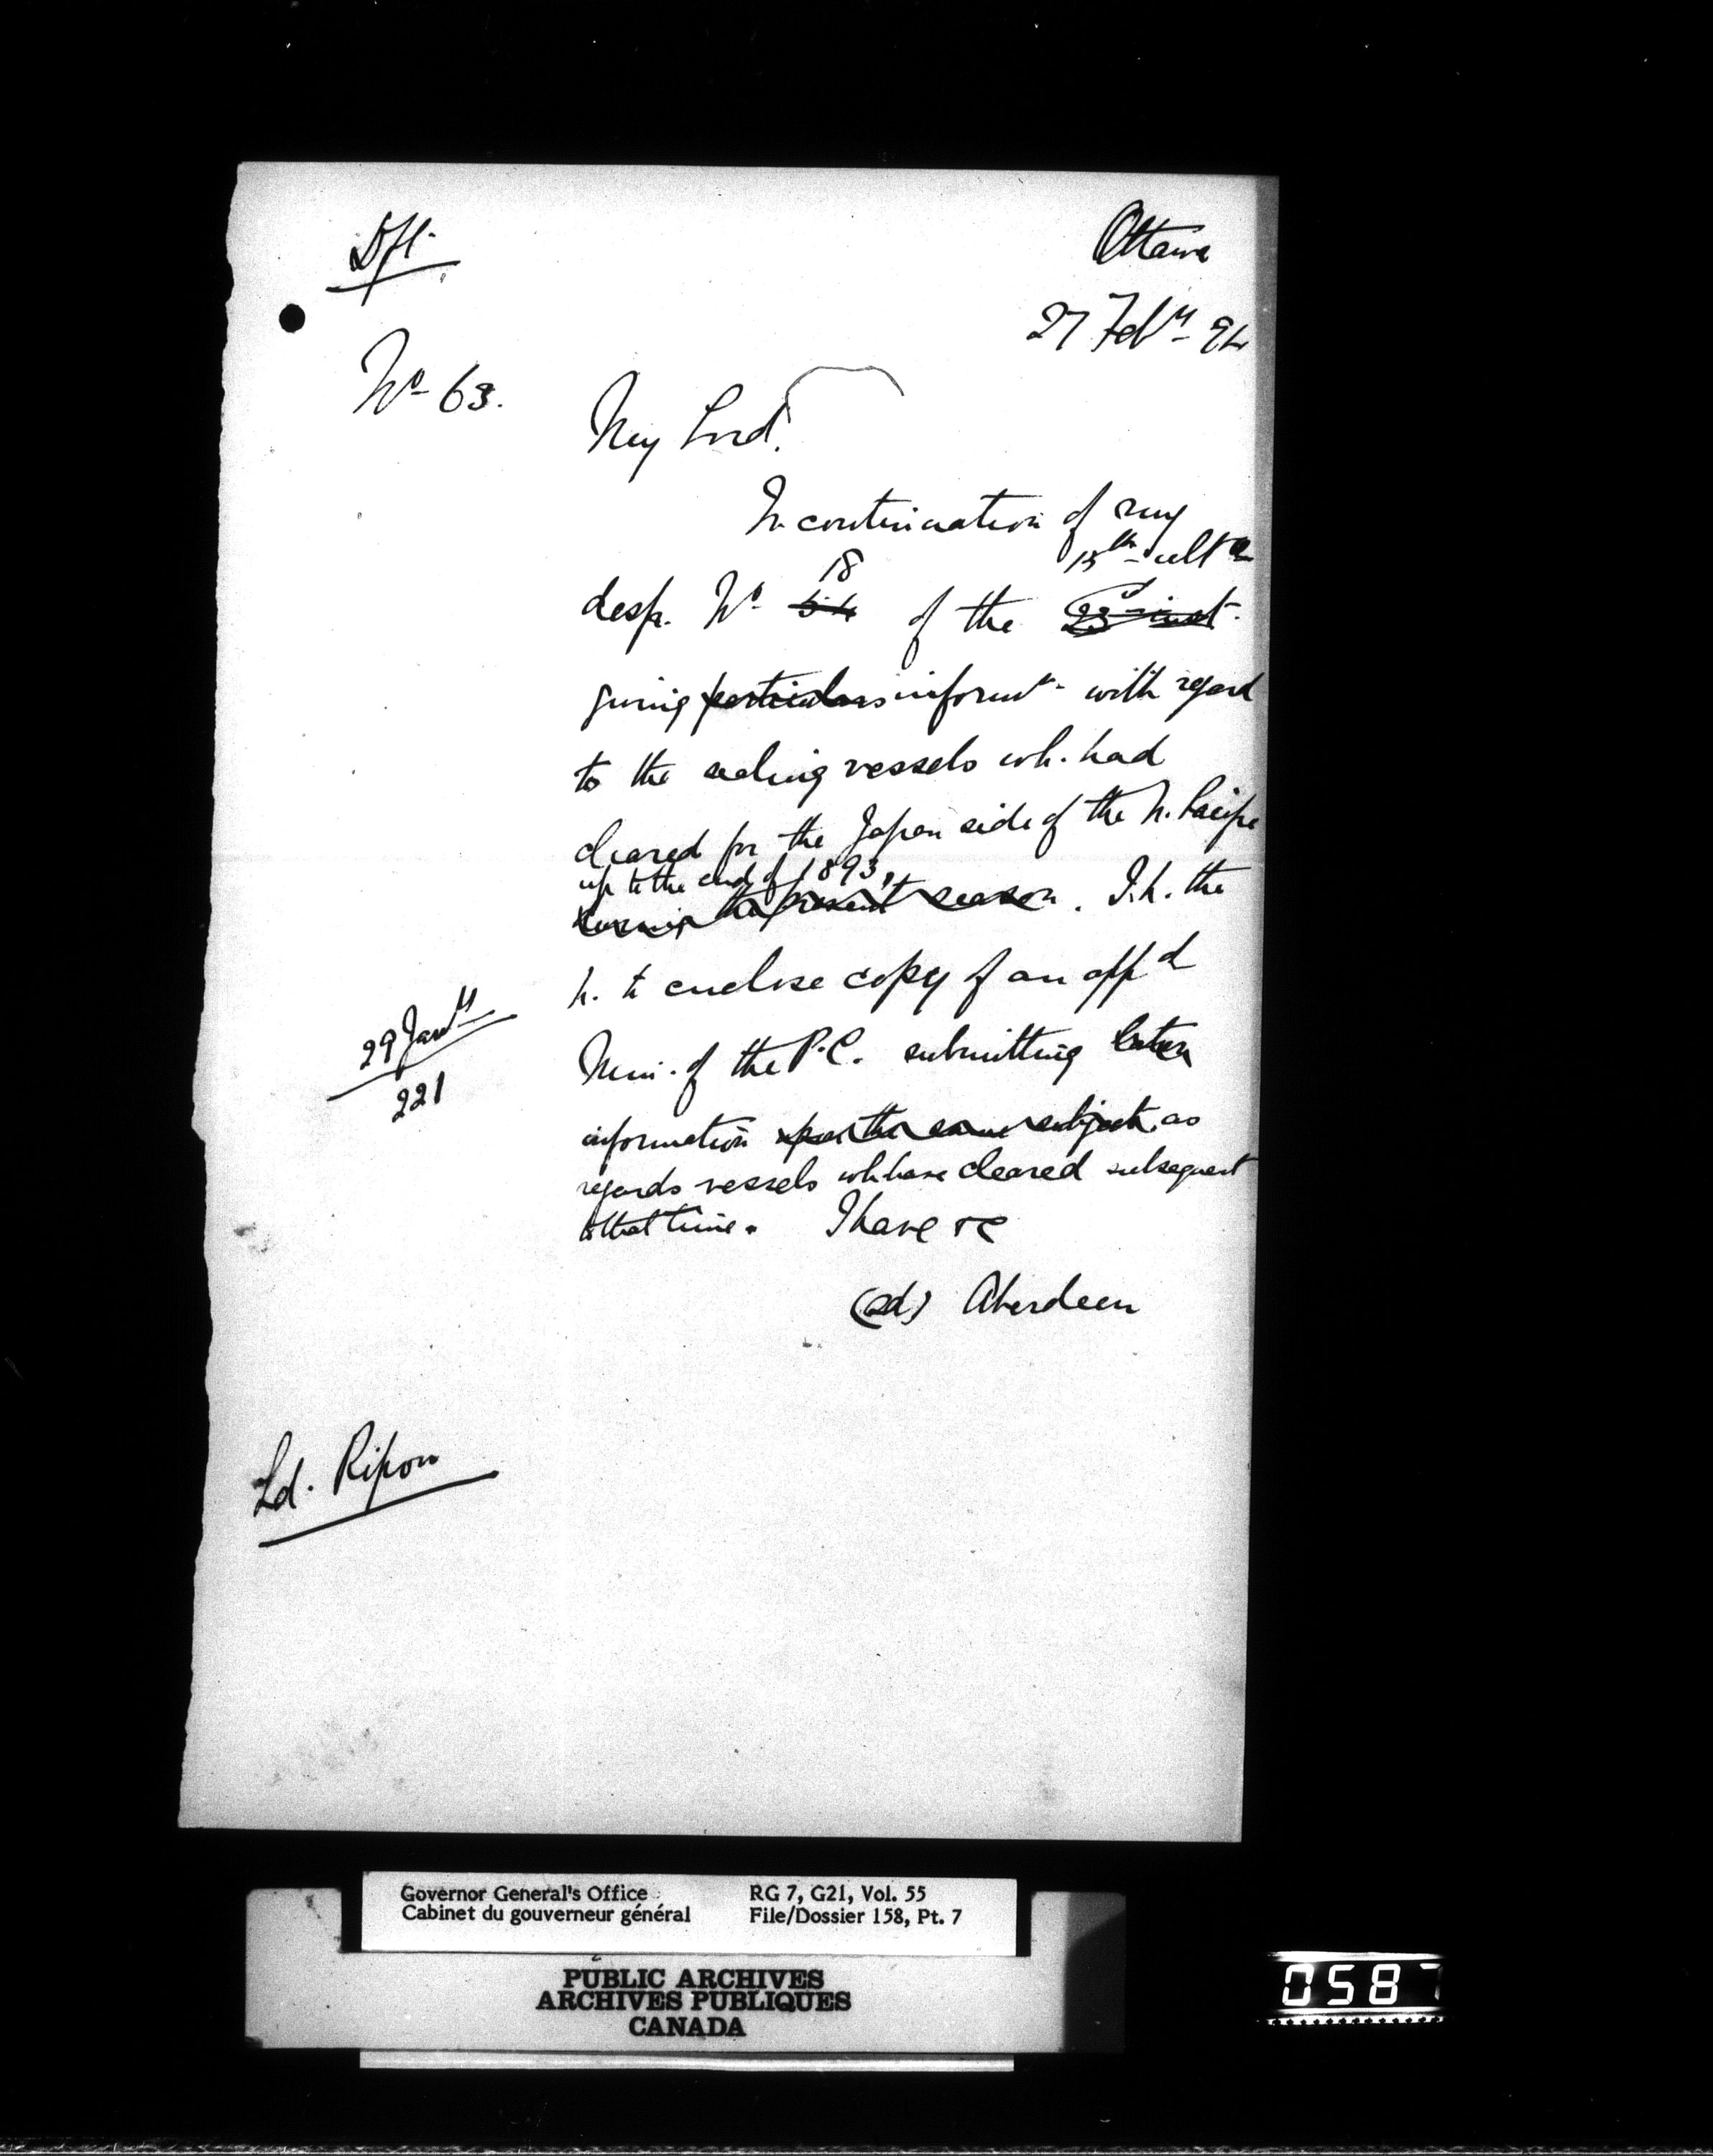 Dft.
Ottawa
27 Feby - 94
No- 63.
My Lord.
In continuation of my
18 15th - ulto
desp. No - 54 of the 23rd inst.
giving particulars informn - with regard
to the sealing vessels wh. had
cleared for the Japan side of the N. Pacific
up to the end of 1893,
during the present season. I.h. the
h. to enclose copy of an appd
29 Jany
221
Min. of the P.C. submitting later
information upon the same subject as
regards vessels wh have cleared subsequent
to that time. I have &c
(sd) Aberdeen
Ld. Ripon
Governor General's Office RG 7, G21, Vol. 55
Cabinet du gouverneur général File/Dossier 158, Pt. 7
PUBLIC ARCHIVES
ARCHIVES PUBLIQUES
CANADA
0587